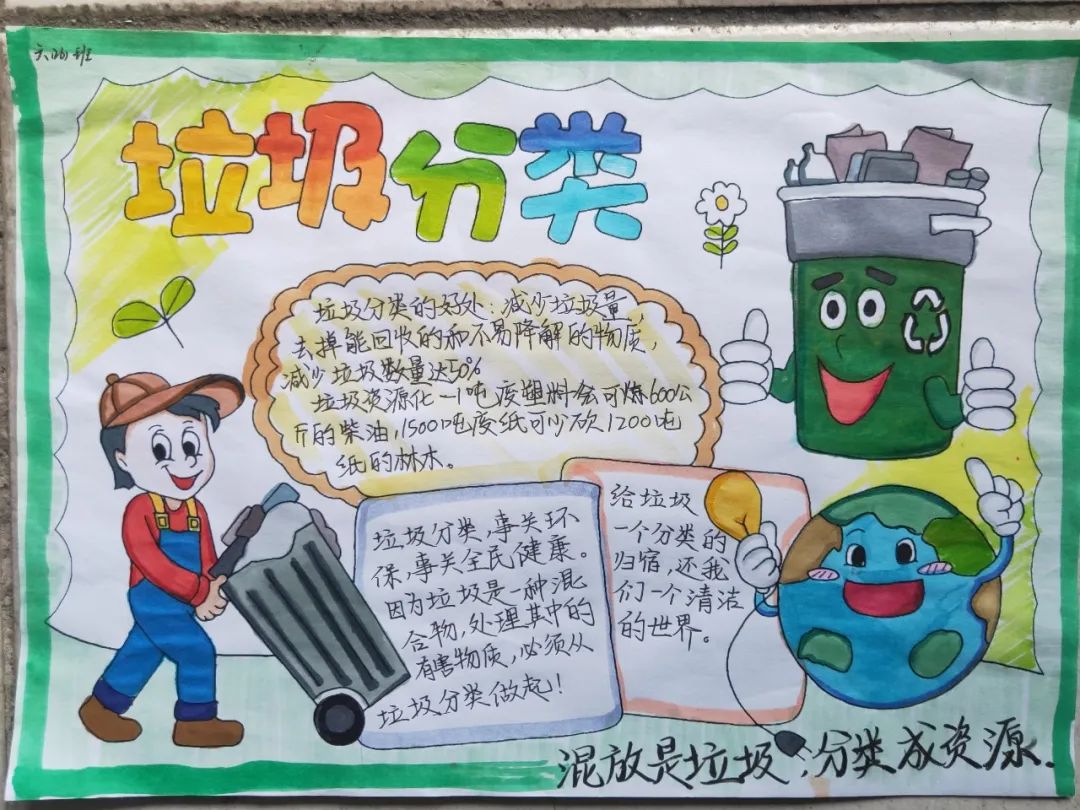 六(2)班
垃圾分类
垃圾分类的好处：减少垃圾量，
去掉能回收的和不易降解的物质，
减少垃圾数量达50%
垃圾资源化一1吨废塑料会可炼600公
斤的柴油，1500吨废纸可少砍1200吨
纸的林木。
垃圾分类，事关环
保，事关全民健康。
因为垃圾是一种混
合物，处理其中的
有害物质，必须从
垃圾分类做起！
给垃圾
一个分类的
归宿，还我
们一个清洁
的世界。
混放是垃圾，分类成资源.